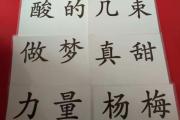 酸的几束
做梦真甜
力量杨梅